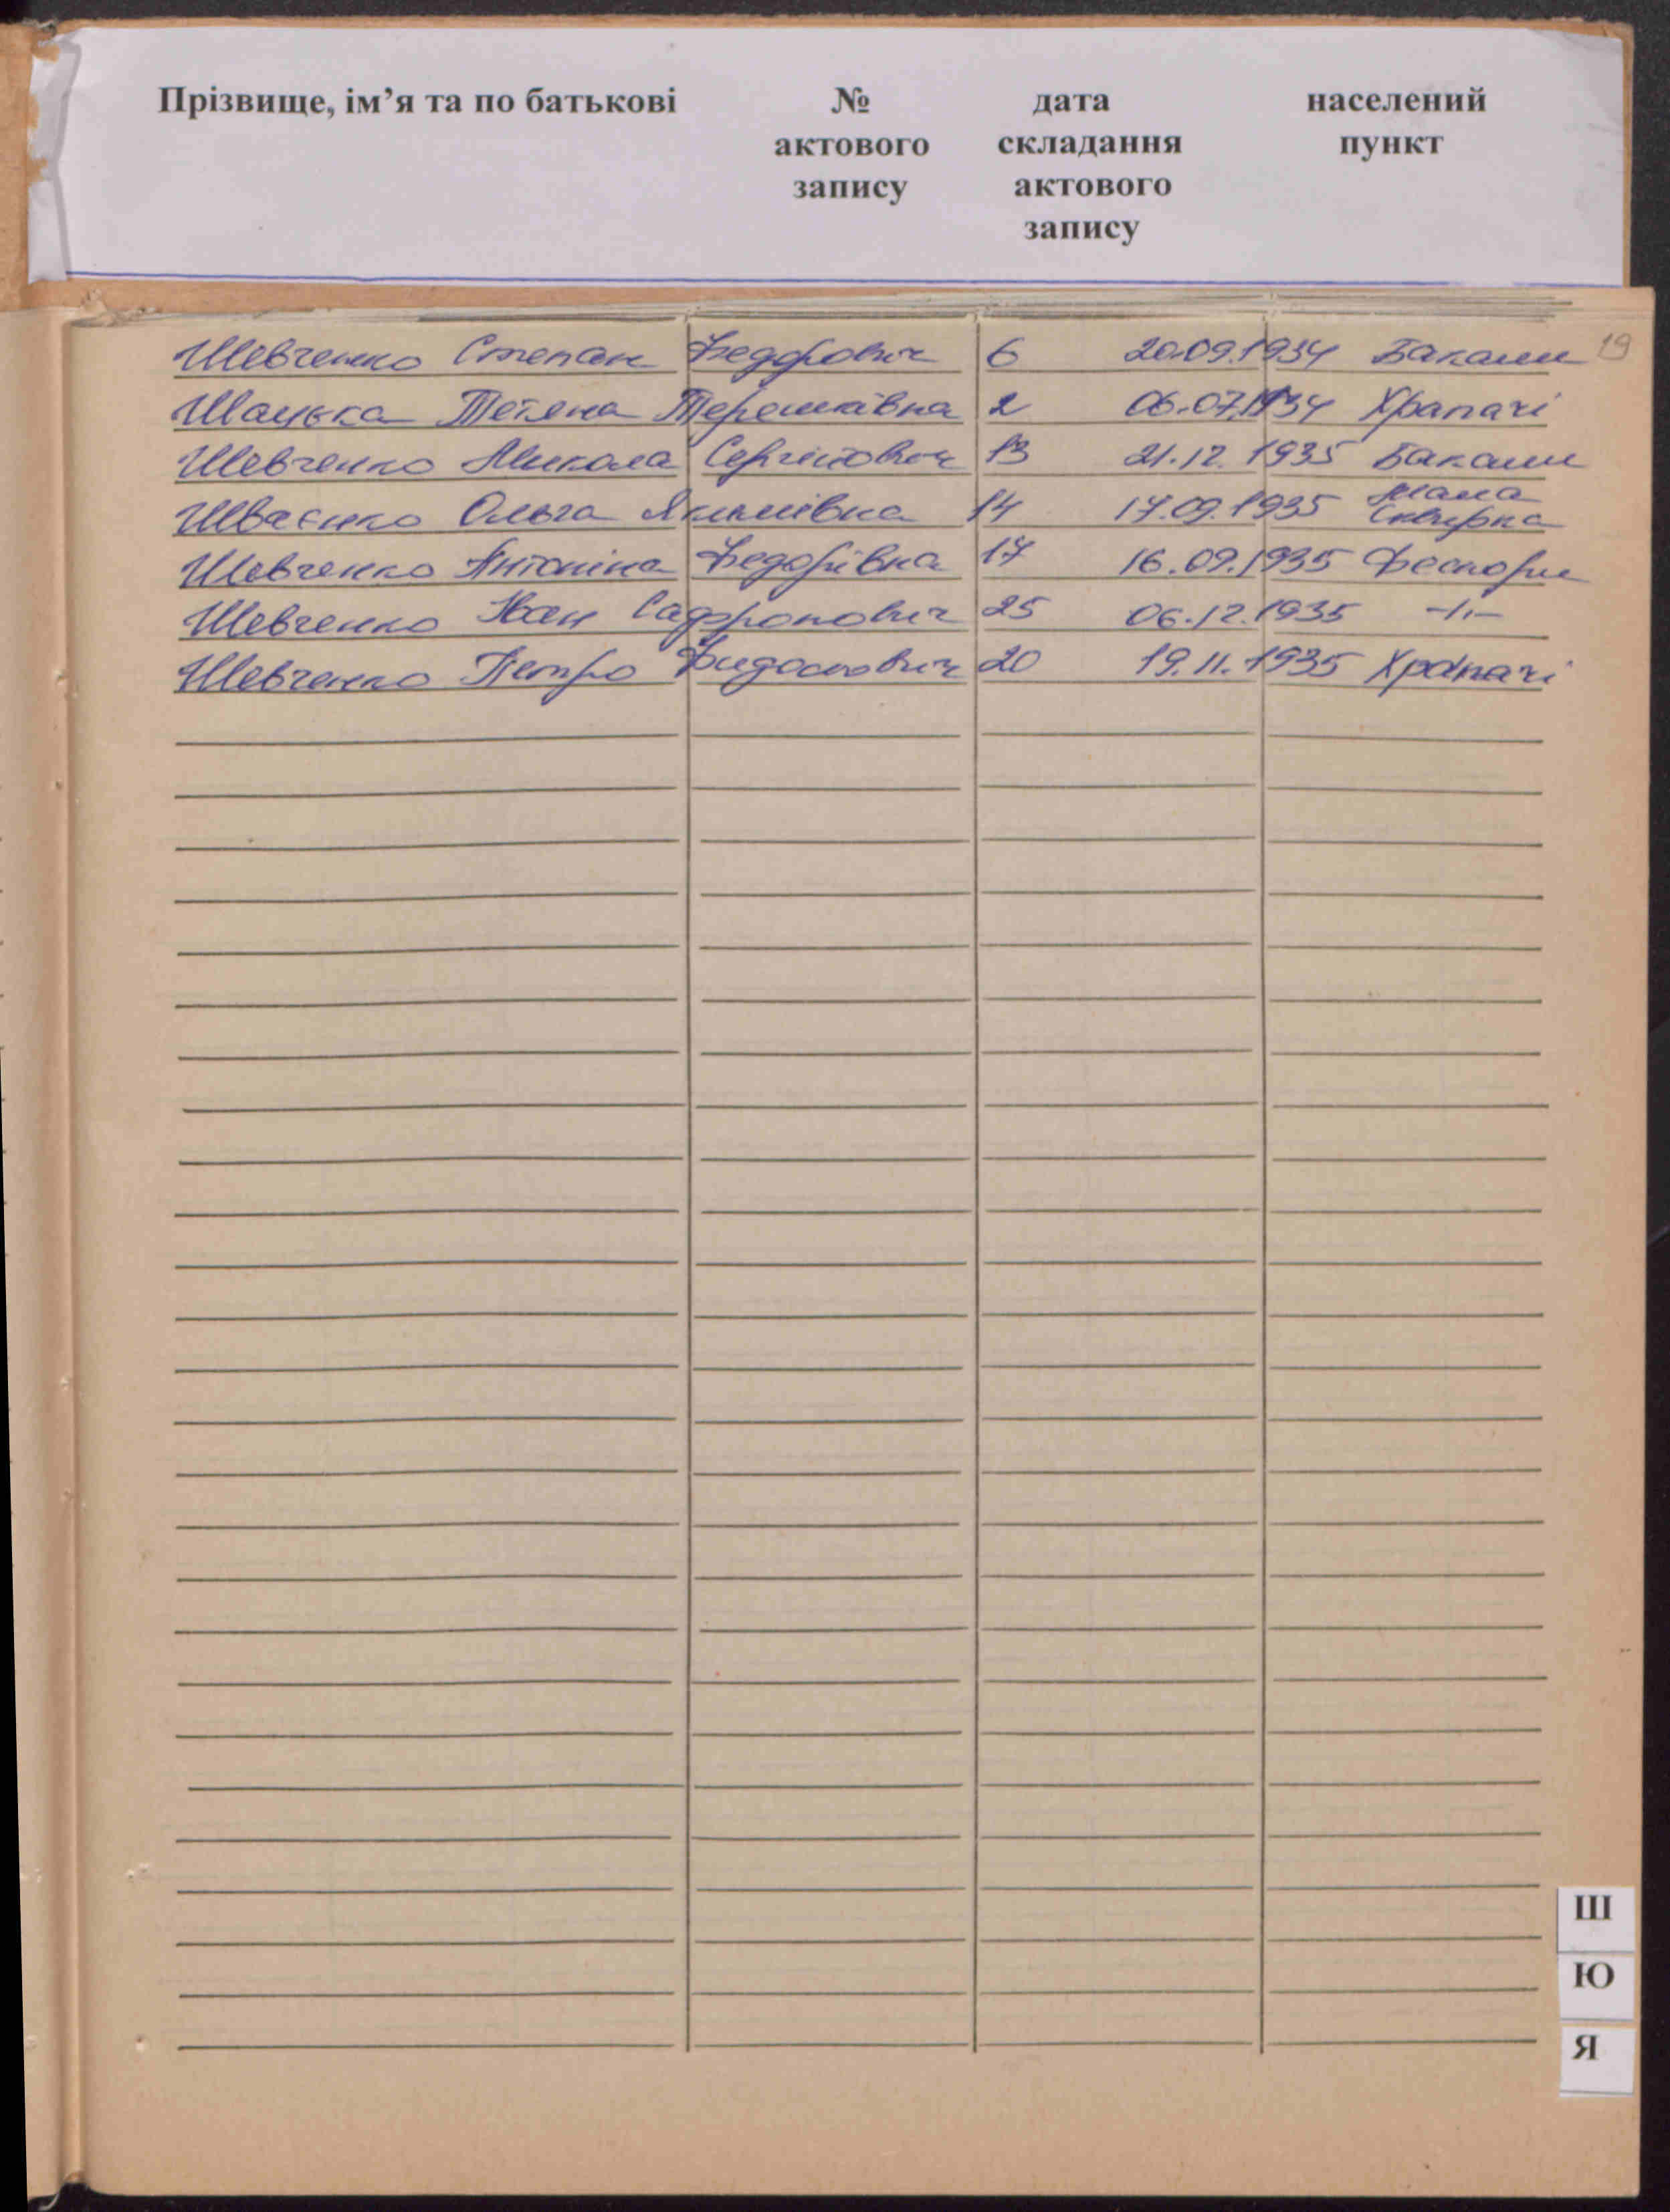 Прізвище, ім’я та по батькові № дата населений
актового складання пункт
запису актового
запису
19
Шевченко Степан Федорович 6 20.09.1934 Бакали
Шацька Тетяна Терешківна 2 06.07.1934 Храпачі
Шевченко Микола Сергійович 13 21.12.1935 Бакали
Шваєнко Ольга Якимівна 14 17.09.1935 Мала Сквирка
Шевченко Антоніна Федорівна 17 16.09.1935 Фесюри
Шевченко Іван Сафронович 25 06.12.1935 -//-
Шевченко Петро Фидосьович 20 19.11.1935 Храпачі
Ш
Ю
Я